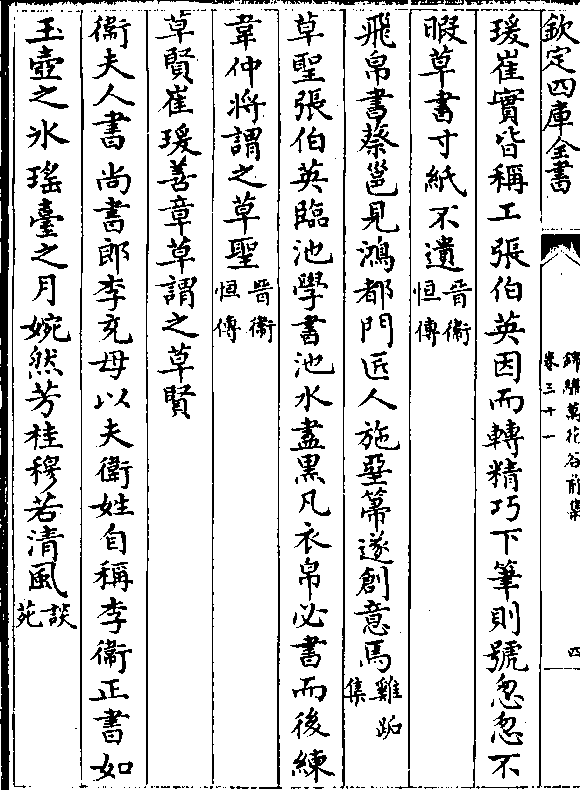 欽定四庫全書
錦繡萬花谷前集
卷三十一
四
瑗崔實皆稱工張伯英因而轉精巧下筆則號怱怱不
暇草書寸紙不遺晉衛恒傳
飛帛書蔡邕見鴻都門匠人施堊箒遂創意焉雞跖集
草聖張伯英臨池學書池水盡黒凡衣帛必書而後練
韋仲將謂之草聖晉衛恒傳
草賢崔瑗善章草謂之草賢
衛夫人書尚書郎李充母以夫衛姓自稱李衛正書如
玉壺之氷瑤臺之月婉然芳桂穆若清風談苑